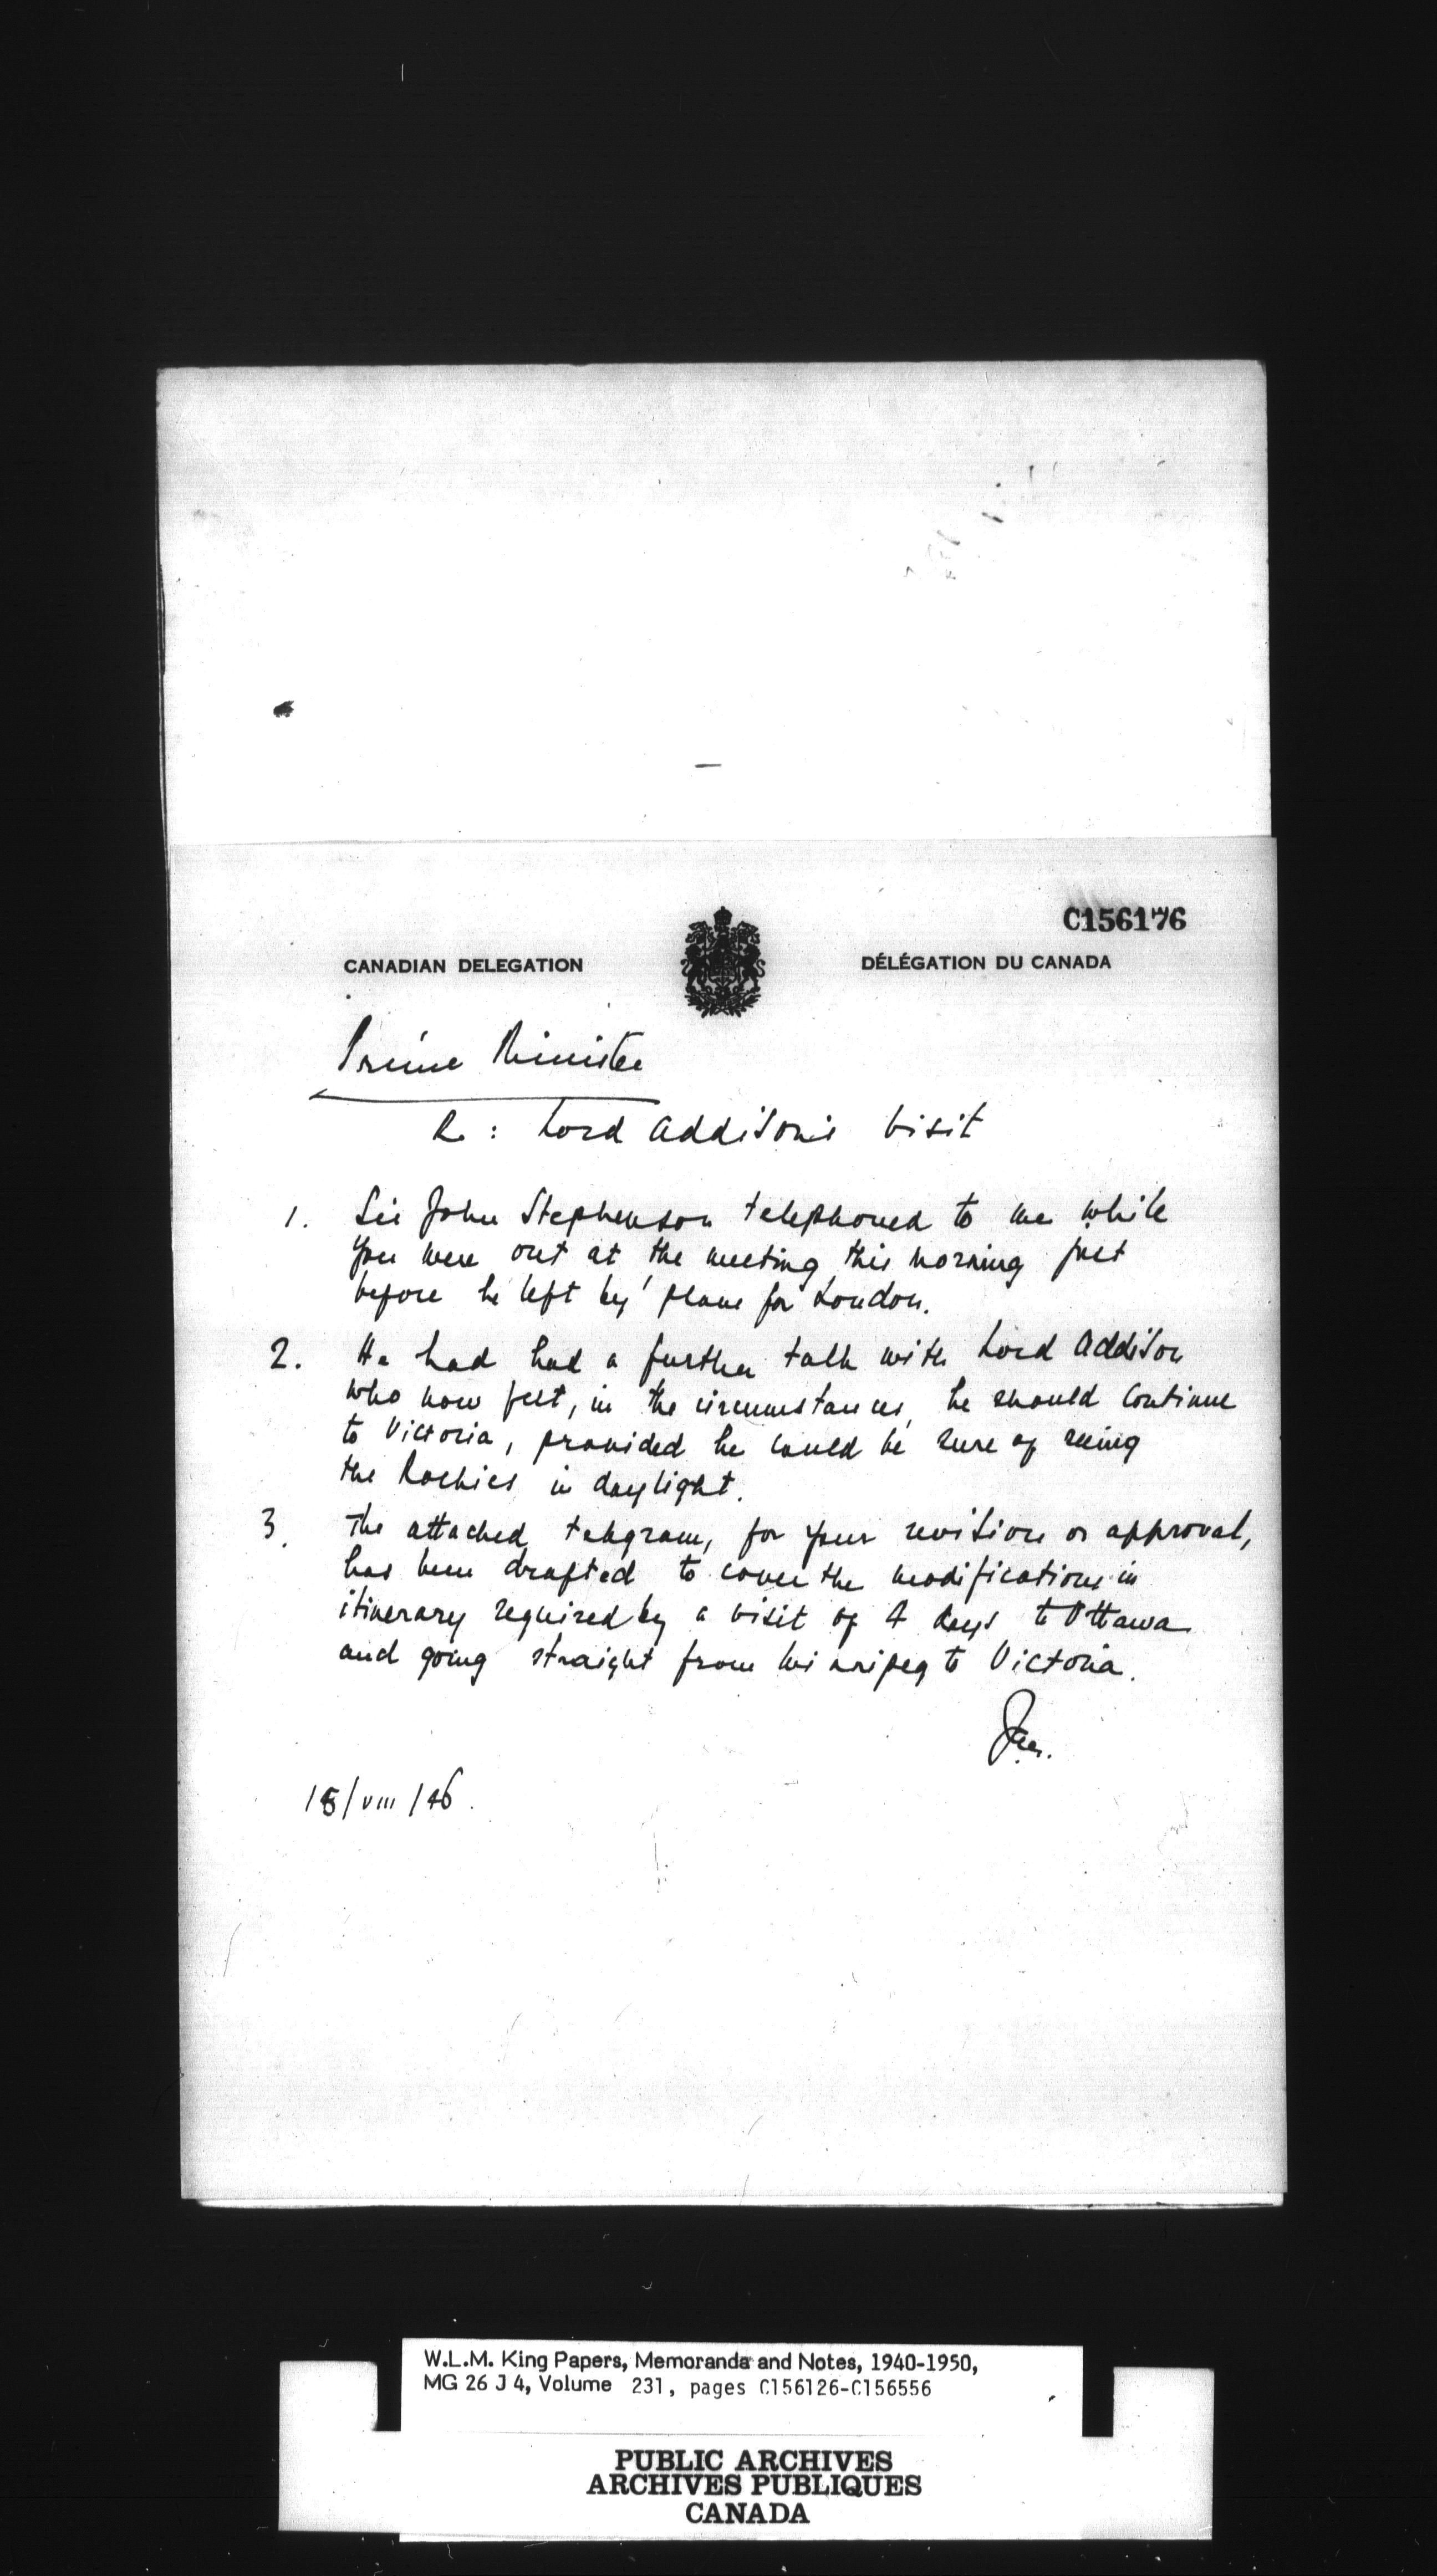 C156176
CANADIAN DELEGATION
DÉLÉGATION DU CANADA
Prime Minister
Re: Lord Addison's visit
1. Sir John Stephenson telephoned to me while
you were out at the meeting this morning just
before he left by plane for London.
2. He had had a further talk with Lord Addison
who now felt, in the circumstances, he should continue
to Victoria, provided he could be sure of seeing
the Rockies in daylight.
3. The attached telegram, for your revision or approval,
has been drafted to cover the modifications in
itinerary required by a visit of 4 days to Ottawa
and going straight from Winnipeg to Victoria.
15/VIII/46.
W.L.M. King Papers, Memoranda and Notes, 1940-1950,
MG 26 J 4, Volume 231, pages C156126-C156556
PUBLIC ARCHIVES
ARCHIVES PUBLIQUES
CANADA